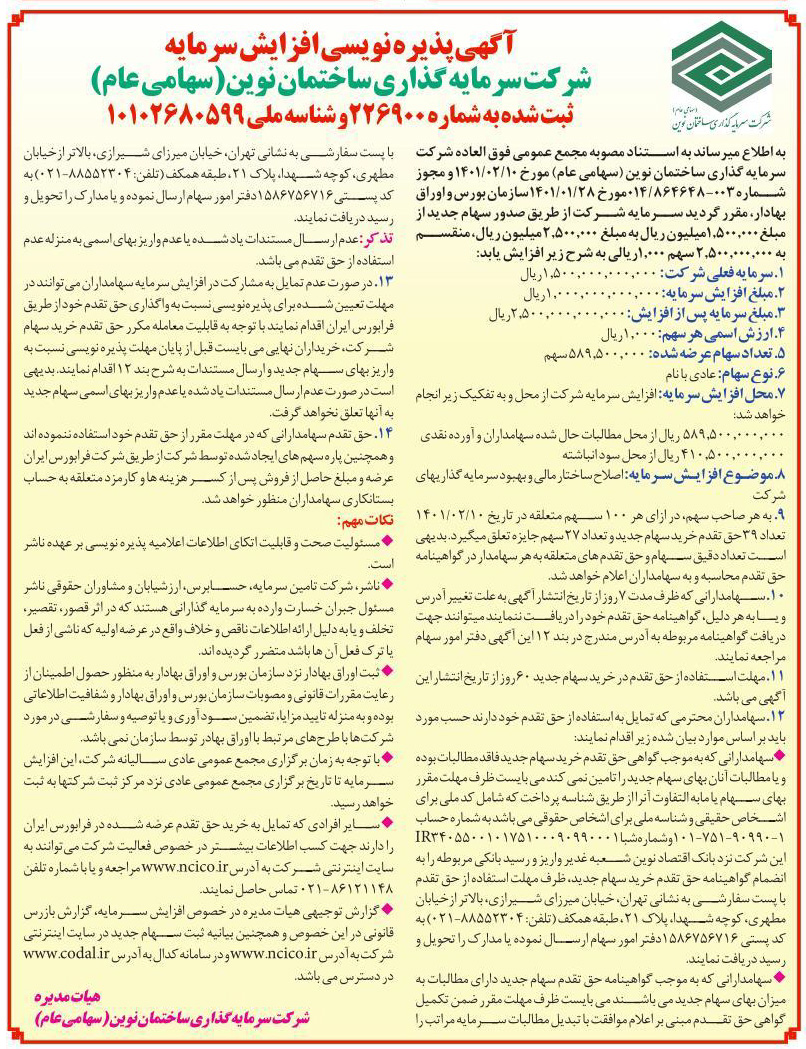 آگهی پذیره نویسی افزایش سرمایه
شرکت سرمایه گذاری ساختمان نوین (سهامی عام)
ثبت شده به شماره ۲۲۶۹۰۰ و شناسه ملی ۱۰۱۰۲۶۸۰۵۹۹
(سهامی عام)
شرکت سرمایه گذاری ساختمان نوین
به اطلاع میرساند به استناد مصوبه مجمع عمومی فوق العاده شرکت
سرمایه گذاری ساختمان نوین (سهامی عام) مورخ ۱۴۰۱/۰۲/۱۰ و مجوز
شماره ۰۰۳-۰۱۴/۸۶۴۶۴۸ مورخ ۱۴۰۱/۰۱/۲۸ سازمان بورس و اوراق
بهادار، مقرر گردید سرمایه شرکت از طریق صدور سهام جدید از
مبلغ ۱,۵۰۰,۰۰۰ میلیون ریال به مبلغ ۲,۵۰۰,۰۰۰ میلیون ریال، منقسم
به ۲,۵۰۰,۰۰۰,۰۰۰ سهم ۱,۰۰۰ ریالی به شرح زیر افزایش یابد:
۱. سرمایه فعلی شرکت: ۱,۵۰۰,۰۰۰,۰۰۰,۰۰۰ ریال
۲. مبلغ افزایش سرمایه: ۱,۰۰۰,۰۰۰,۰۰۰,۰۰۰ ریال
۳. مبلغ سرمایه پس از افزایش: ۲,۵۰۰,۰۰۰,۰۰۰,۰۰۰ ریال
۴. ارزش اسمی هر سهم: ۱,۰۰۰ ریال
۵. تعداد سهام عرضه شده: ۵۸۹,۵۰۰,۰۰۰ سهم
۶. نوع سهام: عادی با نام
۷. محل افزایش سرمایه: افزایش سرمایه شرکت از محل و به تفکیک زیر انجام
خواهد شد:
۵۸۹,۵۰۰,۰۰۰,۰۰۰ ریال از محل مطالبات حال شده سهامداران و آورده نقدی
۴۱۰,۵۰۰,۰۰۰,۰۰۰ ریال از محل سود انباشته
۸. موضوع افزایش سرمایه: اصلاح ساختار مالی و بهبود سرمایه گذاریهای
شرکت
۹. به هر صاحب سهم، در ازای هر ۱۰۰ سهم متعلقه در تاریخ ۱۴۰۱/۰۲/۱۰
تعداد ۳۹ حق تقدم خرید سهام جدید و تعداد ۲۷ سهم جایزه تعلق میگیرد. بدیهی
است تعداد دقیق سهام و حق تقدم های متعلقه به هر سهامدار در گواهینامه
حق تقدم محاسبه و به سهامداران اعلام خواهد شد.
۱۰. سهامدارانی که ظرف مدت ۷ روز از تاریخ انتشار آگهی به علت تغییر آدرس
و یا به هر دلیل، گواهینامه حق تقدم خود را دریافت ننمایند میتوانند جهت
دریافت گواهینامه مربوطه به آدرس مندرج در بند ۱۲ این آگهی دفتر امور سهام
مراجعه نمایند.
۱۱. مهلت استفاده از حق تقدم در خرید سهام جدید ۶۰ روز از تاریخ انتشار این
آگهی می باشد.
۱۲. سهامداران محترمی که تمایل به استفاده از حق تقدم خود دارند حسب مورد
باید بر اساس موارد بیان شده زیر اقدام نمایند:
◆سهامدارانی که به موجب گواهی حق تقدم خرید سهام جدید فاقد مطالبات بوده
و یا مطالبات آنان بهای سهام جدید را تامین نمی کند می بایست ظرف مهلت مقرر
بهای سهام یا مابه التفاوت آنرا از طریق شناسه پرداخت که شامل کد ملی برای
اشخاص حقیقی و شناسه ملی برای اشخاص حقوقی می باشد به شماره حساب
۱-۹۰۹۹۰-۷۵۱-۱۰۱ و شماره شبا IR۳۴۰۵۵۰۰۱۰۱۷۵۱۰۰۰۹۰۹۹۰۰۰۱
این شرکت نزد بانک اقتصاد نوین شعبه غدیر واریز و رسید بانکی مربوطه را به
انضمام گواهینامه حق تقدم خرید سهام جدید، ظرف مهلت استفاده از حق تقدم
با پست سفارشی به نشانی تهران، خیابان میرزای شیرازی، بالاتر از خیابان
مطهری، کوچه شهدا، پلاک ۲۱، طبقه همکف (تلفن: ۸۸۵۵۲۳۰۴-۰۲۱) به
کد پستی ۱۵۸۶۷۵۶۷۱۶ دفتر امور سهام ارسال نموده یا مدارک را تحویل و
رسید دریافت نمایند.
◆سهامدارانی که به موجب گواهینامه حق تقدم سهام جدید دارای مطالبات به
میزان بهای سهام جدید می باشند می بایست ظرف مهلت مقرر ضمن تکمیل
گواهی حق تقدم مبنی بر اعلام موافقت با تبدیل مطالبات سرمایه مراتب را
با پست سفارشی به نشانی تهران، خیابان میرزای شیرازی، بالاتر از خیابان
مطهری، کوچه شهدا، پلاک ۲۱، طبقه همکف (تلفن: ۸۸۵۵۲۳۰۴-۰۲۱) به
کد پستی ۱۵۸۶۷۵۶۷۱۶ دفتر امور سهام ارسال نموده و یا مدارک را تحویل و
رسید دریافت نمایند.
تذکر: عدم ارسال مستندات یاد شده یا عدم واریز بهای اسمی به منزله عدم
استفاده از حق تقدم می باشد.
۱۳. در صورت عدم تمایل به مشارکت در افزایش سرمایه سهامداران می توانند در
مهلت تعیین شده برای پذیره نویسی نسبت به واگذاری حق تقدم خود از طریق
فرابورس ایران اقدام نمایند با توجه به قابلیت معامله مکرر حق تقدم خرید سهام
شرکت، خریداران نهایی می بایست قبل از پایان مهلت پذیره نویسی نسبت به
واریز بهای سهام جدید و ارسال مستندات به شرح بند ۱۲ اقدام نمایند. بدیهی
است در صورت عدم ارسال مستندات یاد شده یا عدم واریز بهای اسمی سهام جدید
به آنها تعلق نخواهد گرفت.
۱۴. حق تقدم سهامدارانی که در مهلت مقرر از حق تقدم خود استفاده ننموده اند
و همچنین پاره سهم های ایجاد شده توسط شرکت از طریق شرکت فرابورس ایران
عرضه و مبلغ حاصل از فروش پس از کسر هزینه ها و کارمزد متعلقه به حساب
بستانکاری سهامداران منظور خواهد شد.
نکات مهم:
◆مسئولیت صحت و قابلیت اتکای اطلاعات اعلامیه پذیره نویسی بر عهده ناشر
است.
◆ناشر، شرکت تامین سرمایه، حسابرس، ارزشیابان و مشاوران حقوقی ناشر
مسئول جبران خسارت وارده به سرمایه گذارانی هستند که در اثر قصور، تقصیر،
تخلف و یا به دلیل ارائه اطلاعات ناقص و خلاف واقع در عرضه اولیه که ناشی از فعل
یا ترک فعل آن ها باشد متضرر گردیده اند.
◆ثبت اوراق بهادار نزد سازمان بورس و اوراق بهادار به منظور حصول اطمینان از
رعایت مقررات قانونی و مصوبات سازمان بورس و اوراق بهادار و شفافیت اطلاعاتی
بوده و به منزله تایید مزایا، تضمین سودآوری و یا توصیه و سفارشی در مورد
شرکت‌ها یا طرح‌های مرتبط با اوراق بهادر توسط سازمان نمی باشد.
◆با توجه به زمان برگزاری مجمع عمومی عادی سالیانه شرکت، این افزایش
سرمایه تا تاریخ برگزاری مجمع عمومی عادی نزد مرکز ثبت شرکتها به ثبت
خواهد رسید.
◆سایر افرادی که تمایل به خرید حق تقدم عرضه شده در فرابورس ایران
را دارند جهت کسب اطلاعات بیشتر در خصوص فعالیت شرکت می توانند به
سایت اینترنتی شرکت به آدرس www.ncico.ir مراجعه و یا با شماره تلفن
۸۶۱۲۱۱۴۸-۰۲۱ تماس حاصل نمایند.
◆گزارش توجیهی هیات مدیره در خصوص افزایش سرمایه، گزارش بازرس
قانونی در این خصوص و همچنین بیانیه ثبت سهام جدید در سایت اینترنتی
شرکت به آدرس www.ncico.ir و در سامانه کدال به آدرس www.codal.ir
در دسترس می باشد.
هیات مدیره
شرکت سرمایه گذاری ساختمان نوین (سهامی عام)